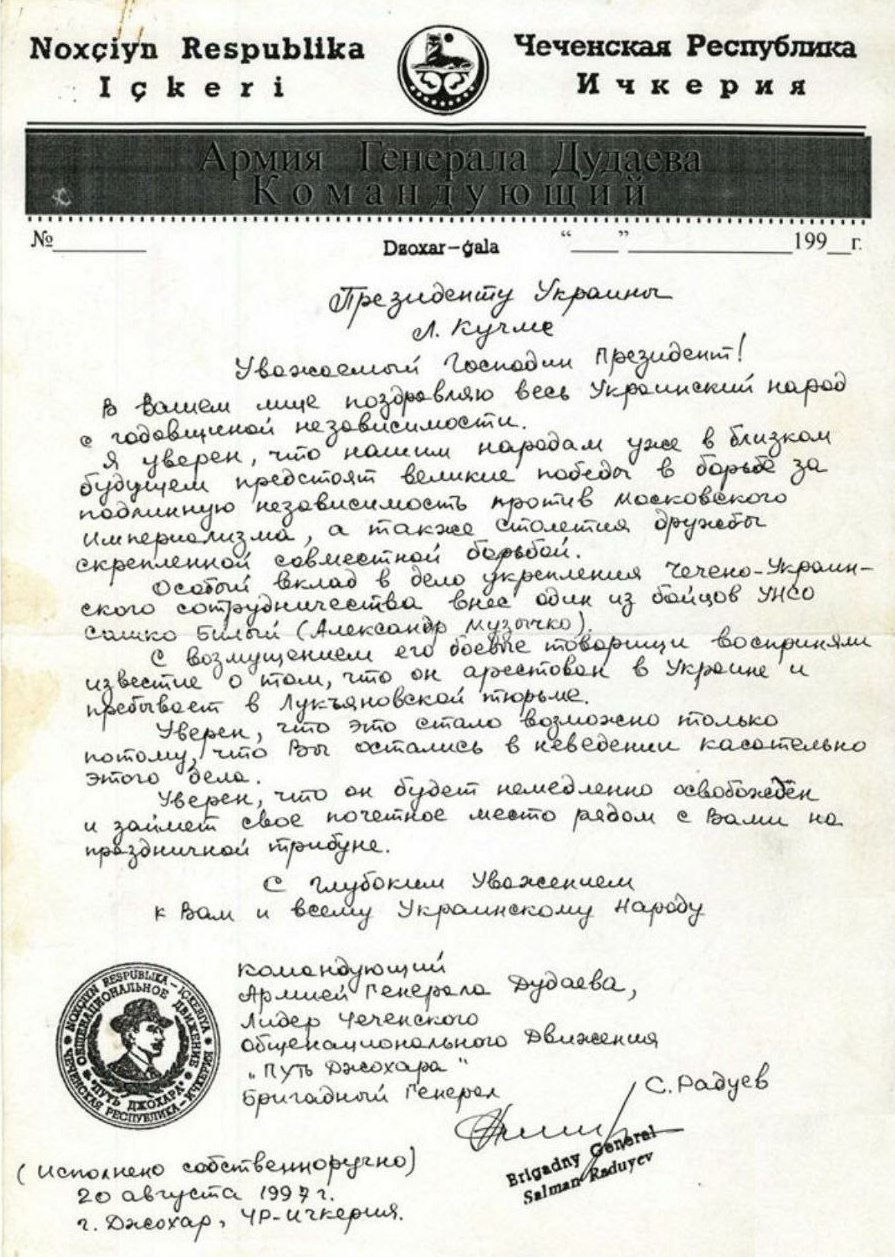 Noxçiyn Respublika
Içkeri
Чеченская Республика
Ичкерия
Армия Генерала Дудаева
Командующий
№________ Dƶoxar-ġala “____” ______________199__г.
Президенту Украины
Л. Кучме
Уважаемый Господин Президент!
В Вашем лице поздравляю весь Украинский народ
с годовщиной независимости.
Я уверен, что нашим народам уже в близком
будущем предстоят великие победы в борьбе за
подлинную независимость против Московского
Империализма, а также столетия дружбы
скрепленной совместной борьбой.
Особый вклад в дело укрепления Чечено-Украин-
ского сотрудничества внес один из бойцов УНСО
Сашко Билый (Александр Музычко).
С возмущением его боевые товарищи восприняли
известие о том, что он арестован в Украине и
пребывает в Лукъяновской тюрьме.
Уверен, что это стало возможно только
потому, что Вы остались в неведении касательно
этого дела.
Уверен, что он будет немедленно освобождён
и займет свое почетное место рядом с Вами на
праздничной трибуне.
С глубоким Уважением
к Вам и всему Украинскому Народу
Командующий
Армией Генерала Дудаева,
Лидер Чеченского
общенационального Движения
„Путь Джохара“
Бригадный Генерал
С. Радуев
Brigadny General
Salman Raduyev
NOXÇIYN RESPUBLIKA - IÇKERIYA
ЧЕЧЕНСКАЯ РЕСПУБЛИКА - ИЧКЕРИЯ
ОБЩЕНАЦИОНАЛЬНОЕ ДВИЖЕНИЕ
"ПУТЬ ДЖОХАРА"
(исполнено собственноручно)
20 августа 1997 г.
г. Джохар, ЧР-Ичкерия.